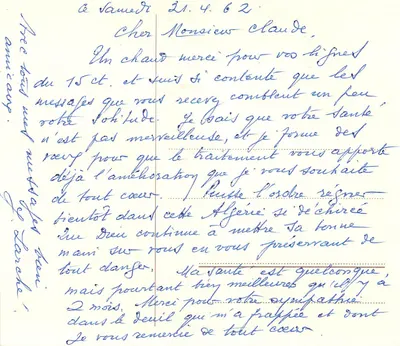 ce Samedi 21.4.62.
Cher Monsieur Claude,
Un chaud merci pour vos lignes
du 15 ct. et suis si contente que les
messages que vous recevez comblent un peu
votre solitude. Je sais que votre santé
n'est pas merveilleuse, et je forme des
vœux pour que le traitement vous apporte
déjà l'amélioration que je vous souhaite
de tout cœur. Puisse l'ordre régner
bientôt dans cette Algérie si déchirée
Que Dieu continue à mettre sa bonne
main sur vous en vous préservant de
tout danger. Ma santé est quelconque,
mais pourtant bien meilleure qu'il y a
2 mois. Merci pour votre sympathie
dans le deuil qui m'a frappée et dont
Je vous remercie de tout cœur
Avec tous mes messages bien
amicaux.
Larché